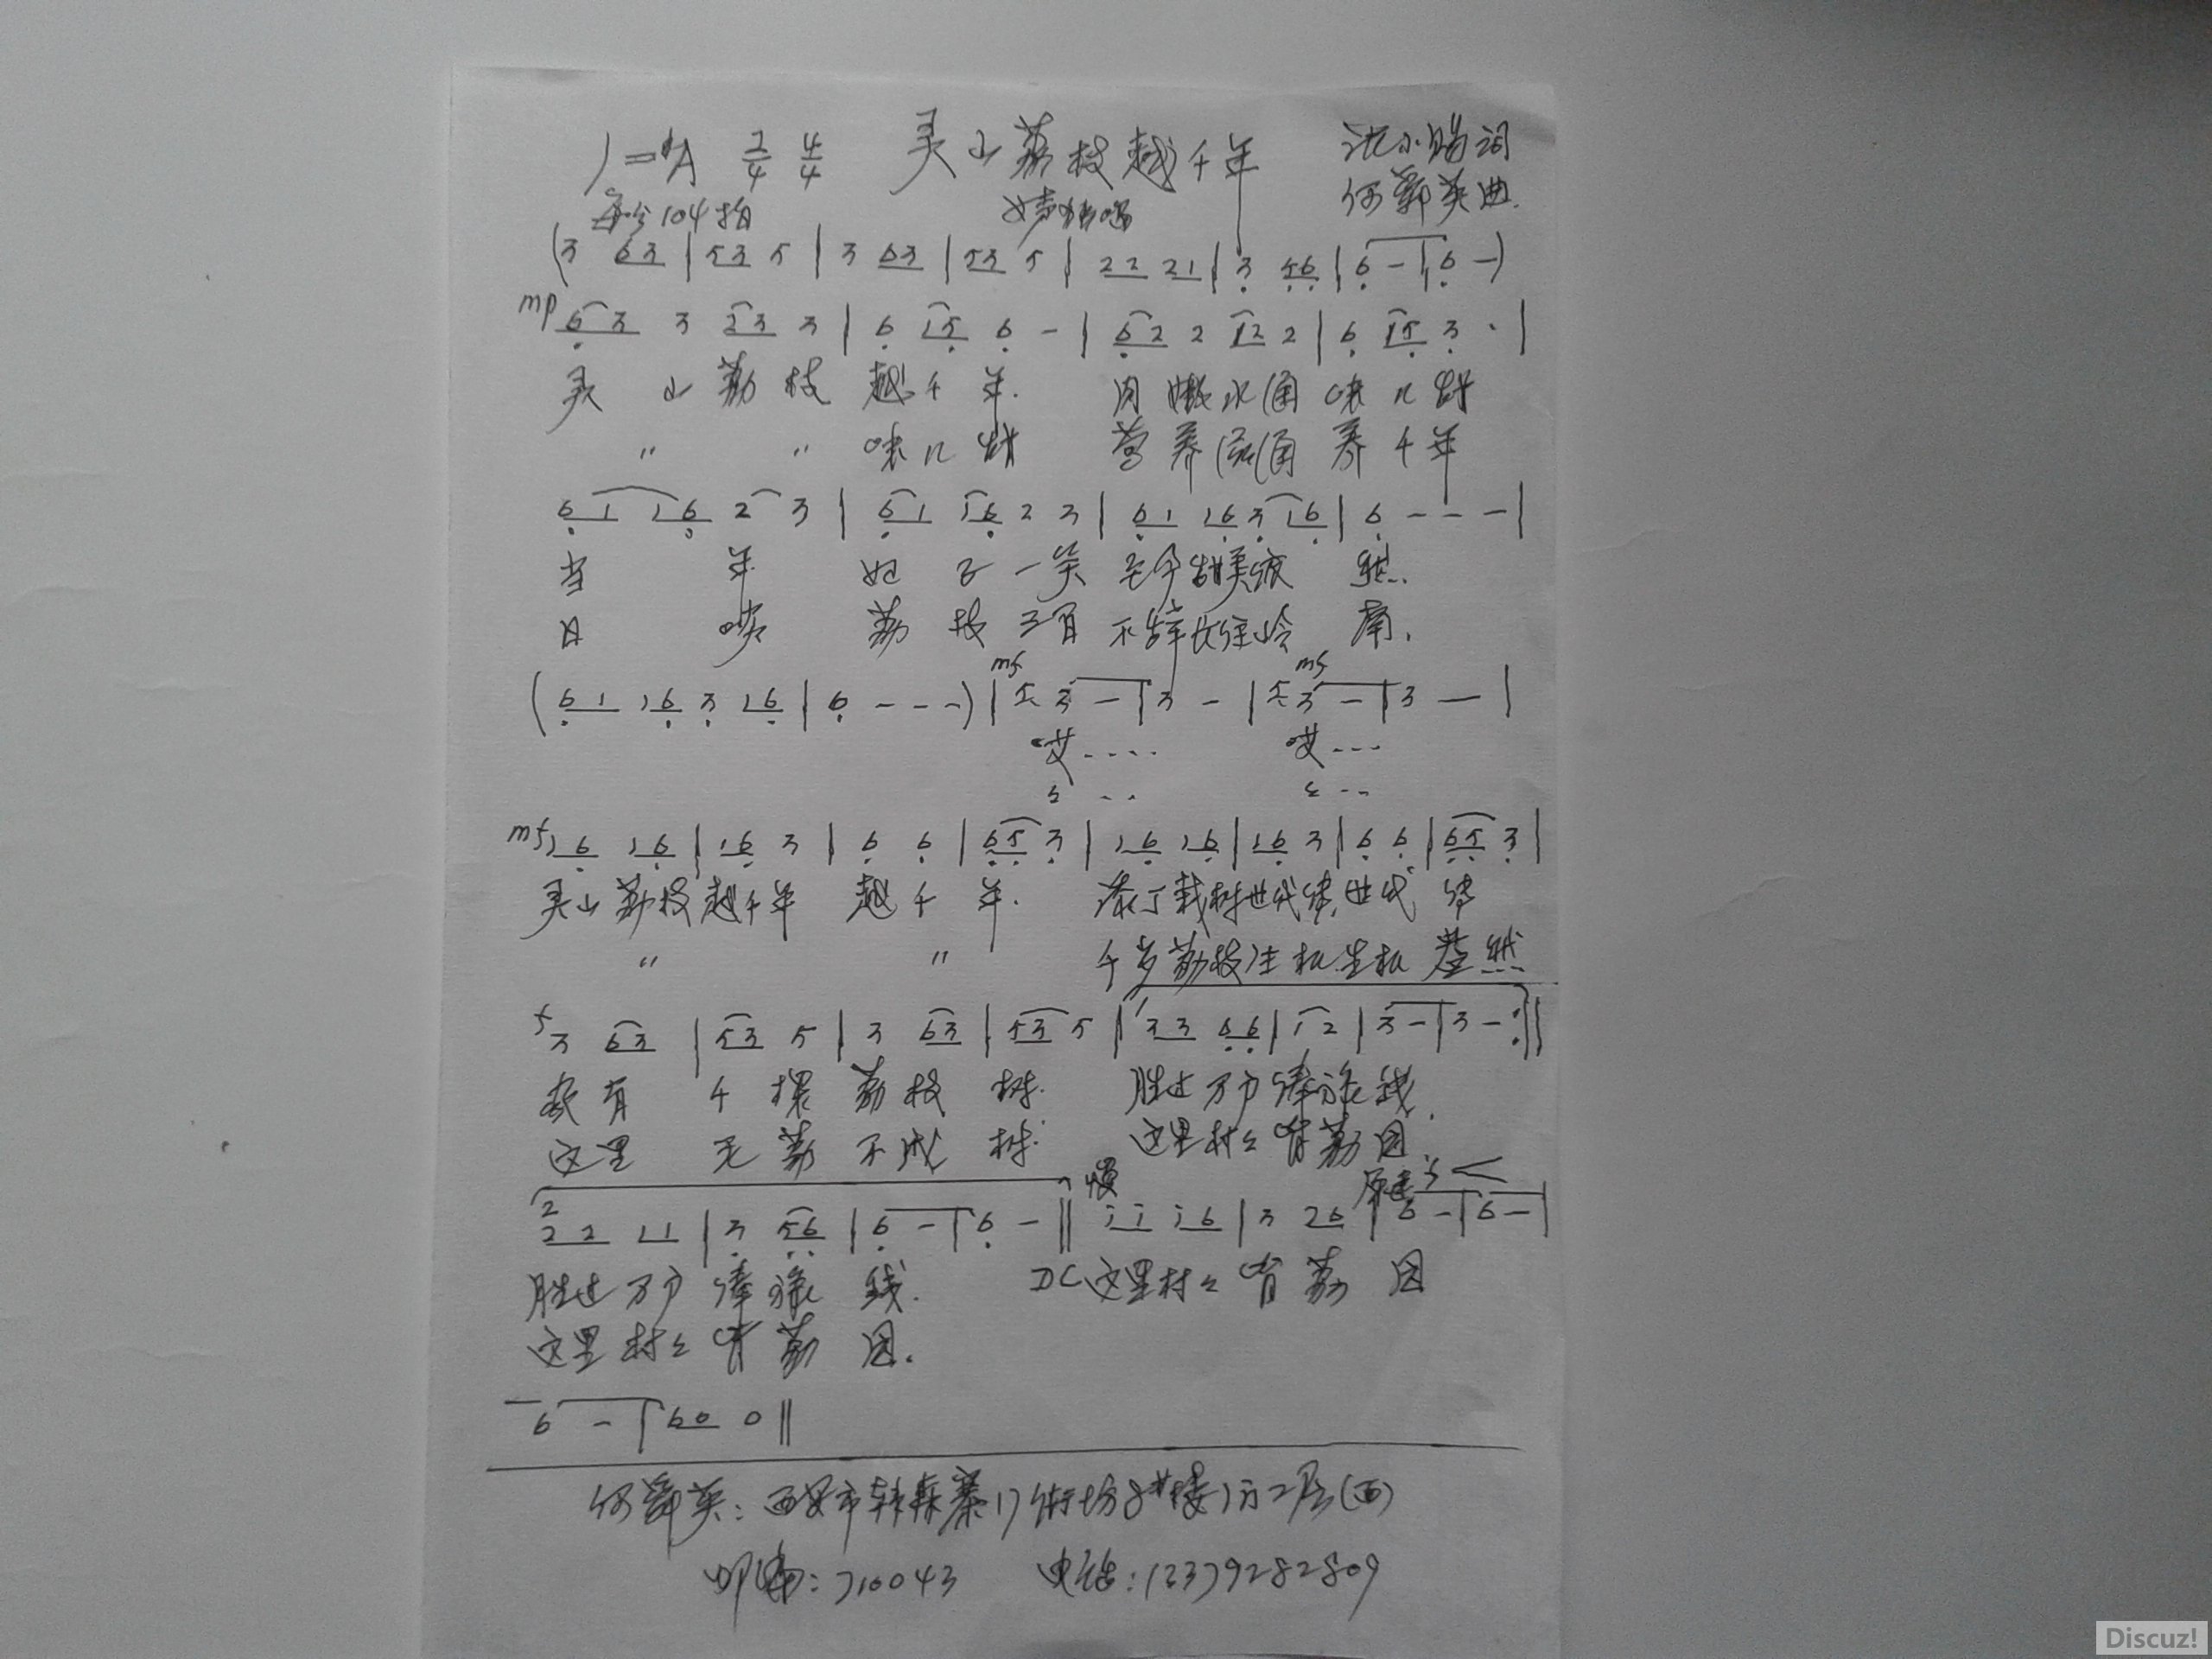 1=A 2/4 4/4 灵山荔枝越千年 词
每分104拍 女声独唱 何 英曲.
(3 63 | 53 5 | 3 63 | 53 5 | 22 21 | 3 56 | 6 - | 6 -)
mp 63 3 23 3 | 6 15 6 - | 62 2 12 2 | 6 15 3 · |
灵山荔枝越千年. 肉嫩水滴味儿鲜
" " 味儿鲜 营养 养千年
61 16 2 3 | 61 16 2 3 | 61 16 3 16 | 6 - - - |
当年妃子一笑至今 然.
日啖荔枝三百不辞长住岭南.
(61 16 3 16 | 6 - - -) | mf 5 3 - | 3 - | mf 5 3 - | 3 - |
哎.... 哎...
mf 16 16 | 16 3 | 6 6 | 65 3 | 16 16 | 16 3 | 6 6 | 65 3 |
灵山荔枝越千年 越千年. 添丁栽树世代传世代传
" " 千岁荔枝 机生机盎然
f 3 63 | 53 5 | 3 63 | 53 5 | 1 33 66 | 12 | 3 - | 3 - :||
家有千棵荔枝树. 胜过万户俸禄钱.
这里无荔不成村. 这里村々皆荔园.
2 22 11 | 3 56 | 6 - | 6 - || 慢 ii i6 | 3 26 | 原速 6 - | 6 - |
胜过万户俸禄钱. DC 这里村々皆荔园
这里村々皆荔园.
6 - | 60 0 ||
何 英: 西安市韩森寨 街坊8#楼1门2层(西)
邮编: 710043 电话: 13379282809
Discuz!